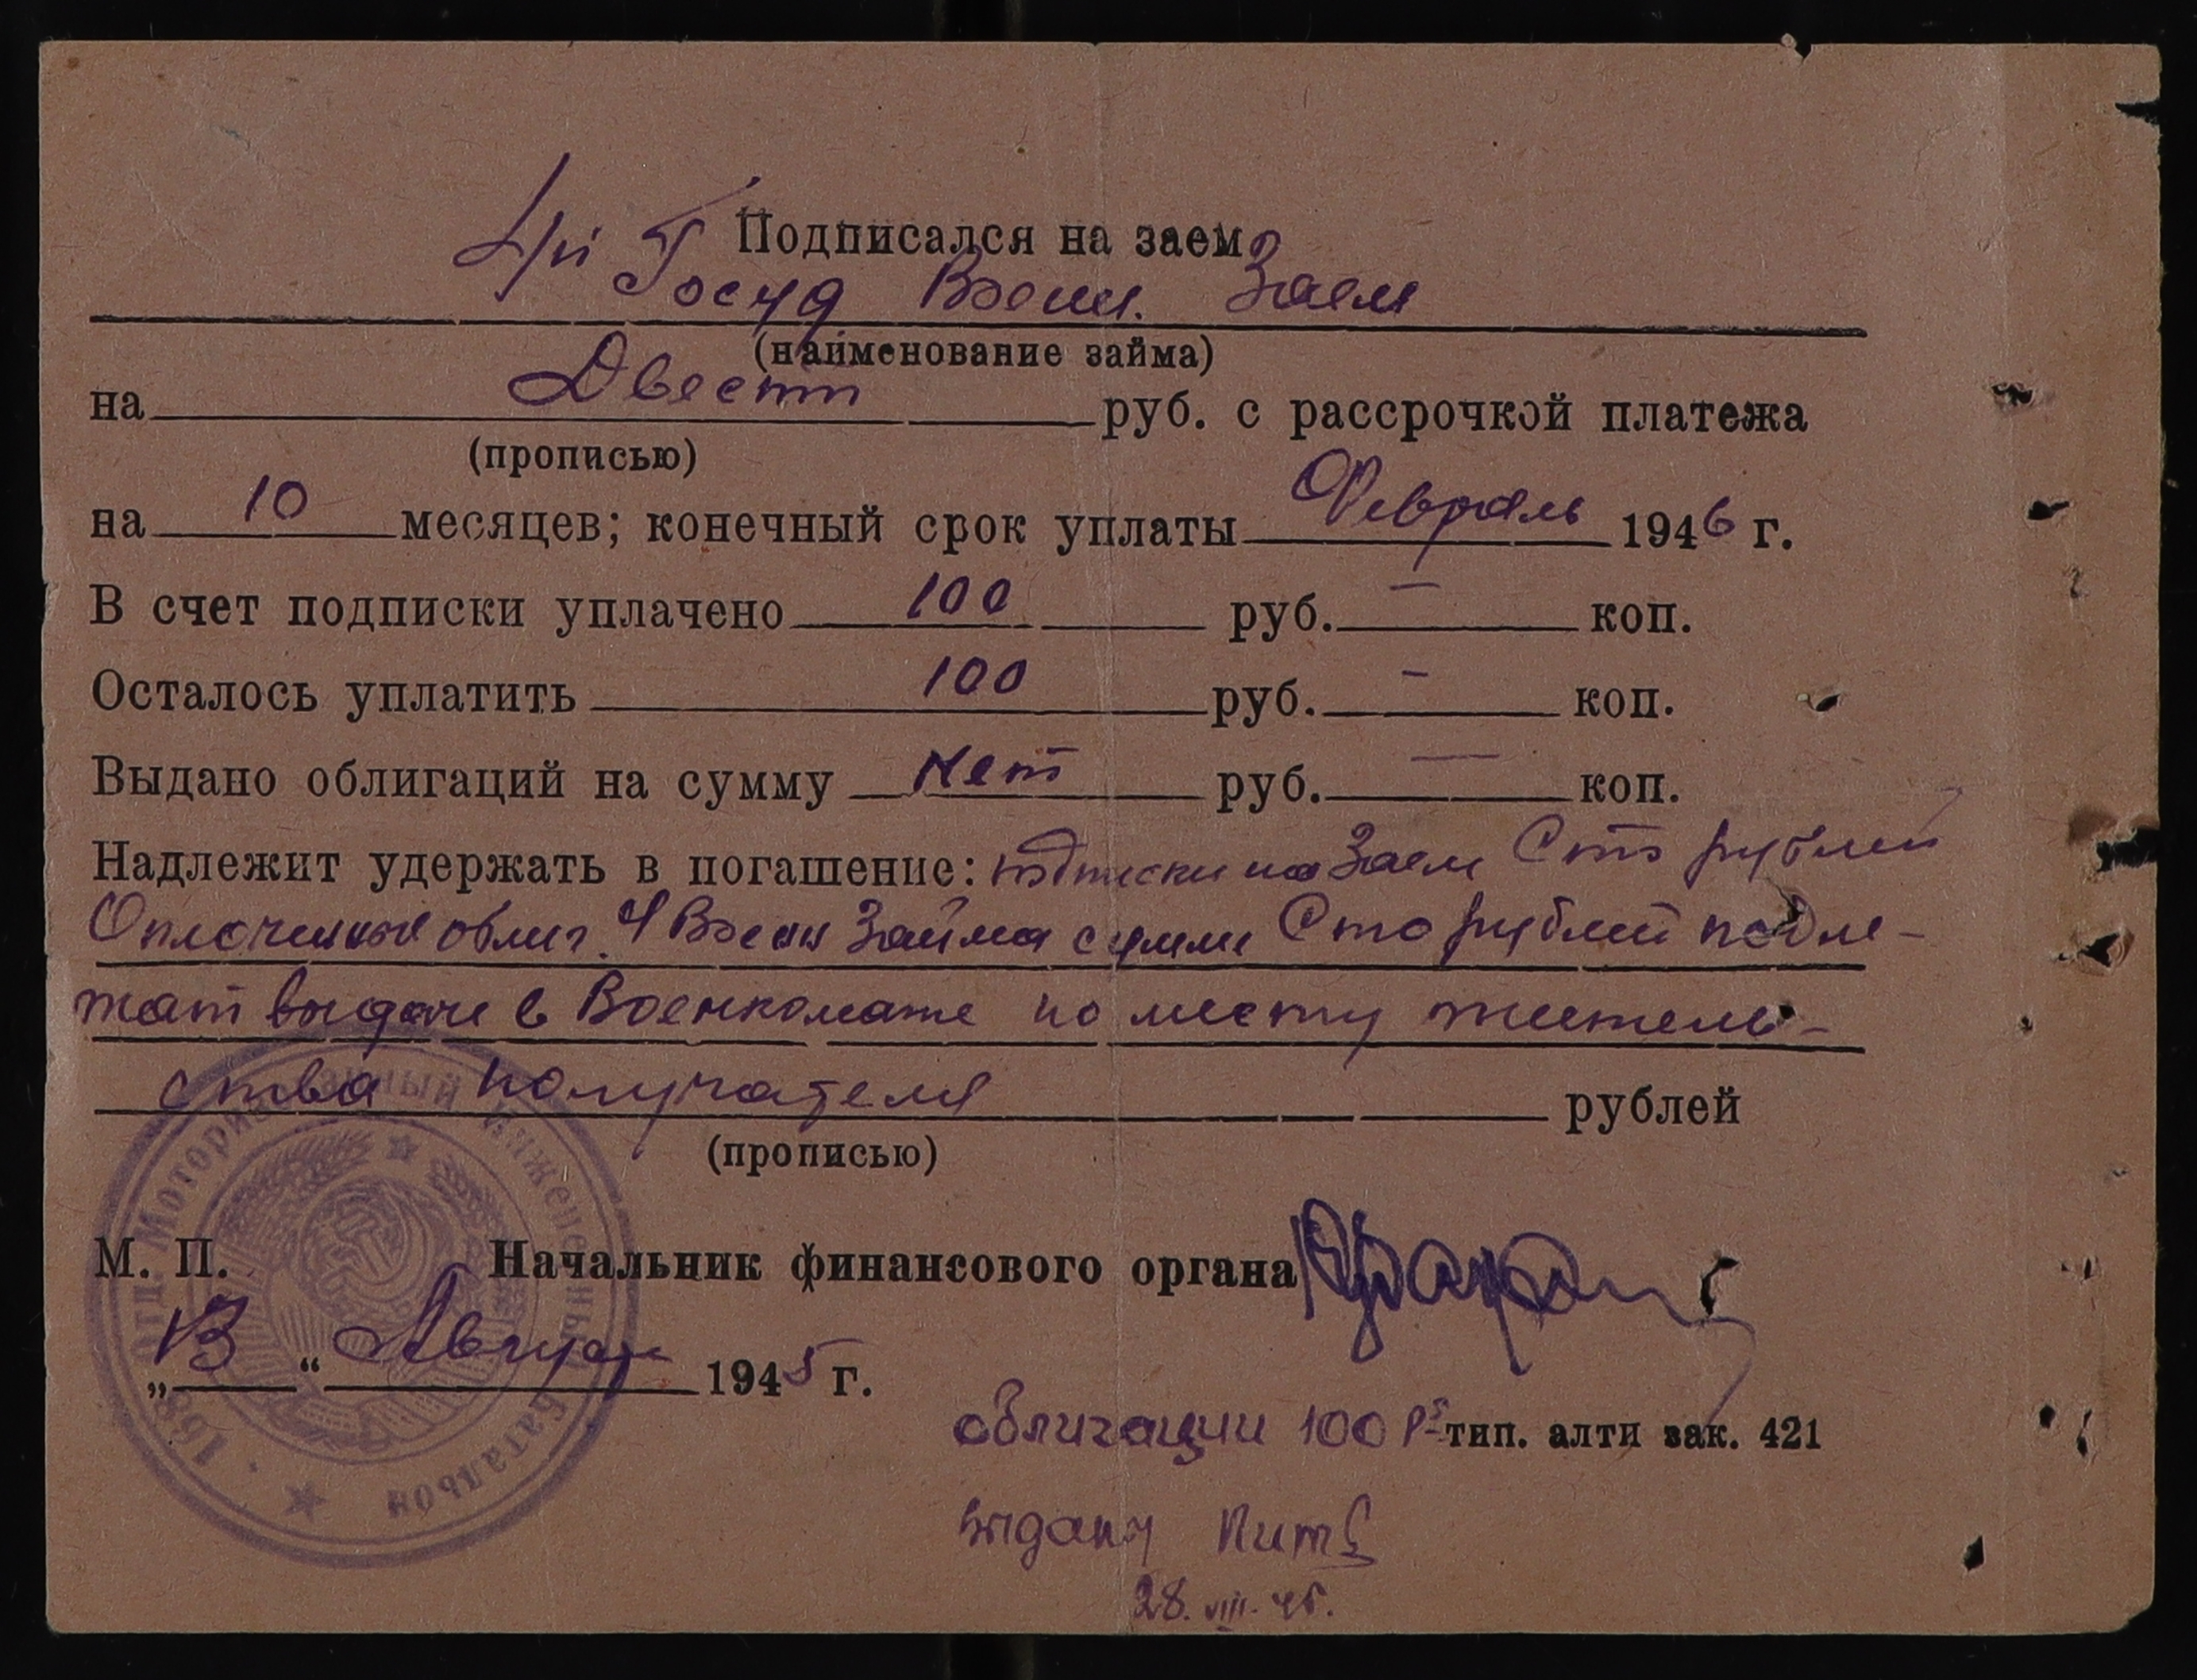 Подписался на заем
4й Госуд Воен. Заем
(наименование займа)
на Двести руб. с рассрочкой платежа
(прописью)
на 10 месяцев; конечный срок уплаты Февраль 1946 г.
В счет подписки уплачено 100 руб. — коп.
Осталось уплатить 100 руб. — коп.
Выдано облигаций на сумму нет руб. — коп.
Надлежит удержать в погашение: подписки на Заем Сто рублей
Оплоченные облиг. 4 Воен Займа сумми Сто рублей подле-
жат выдаче в Военкомате по месту житель-
ства получателя рублей
(прописью)
М. П. Начальник финансового органа
„13“ Август 1945 г.
облигации 100 р тип. алти зак. 421
28. VIII. 45.
Отд. Моторизованный Инженерный Батальон